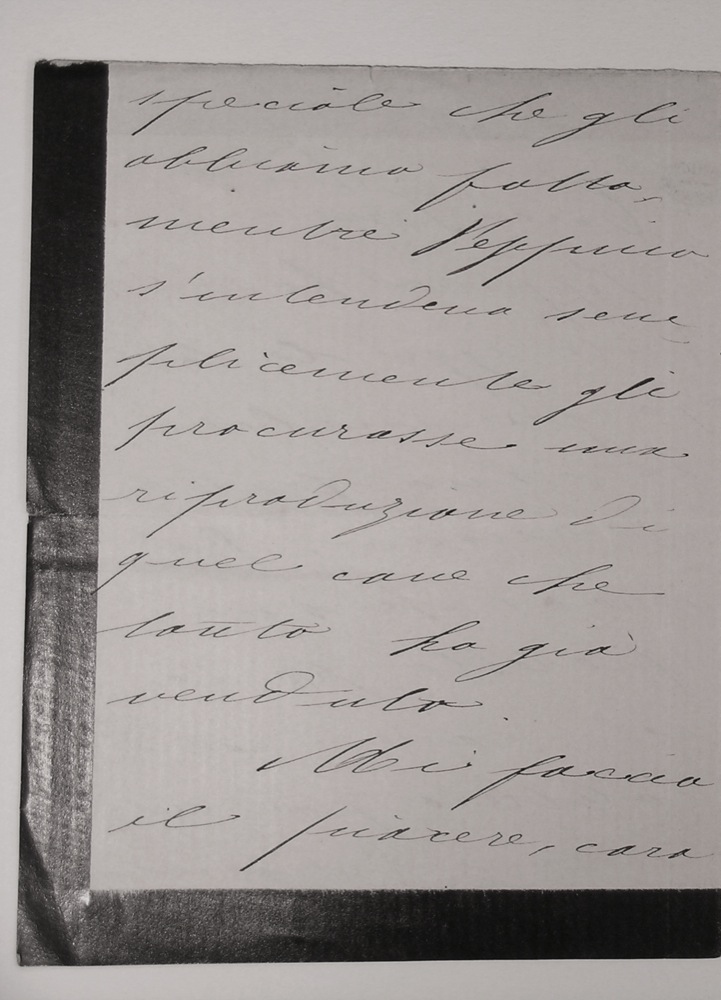 speciale che gli
abbiamo fatto,
mentre Peppino
s'intendeva sem
plicemente gli
procurasse una
riproduzione di
quel cane che
tanto ha già
venduto.
Mi faccia
il piacere, caro